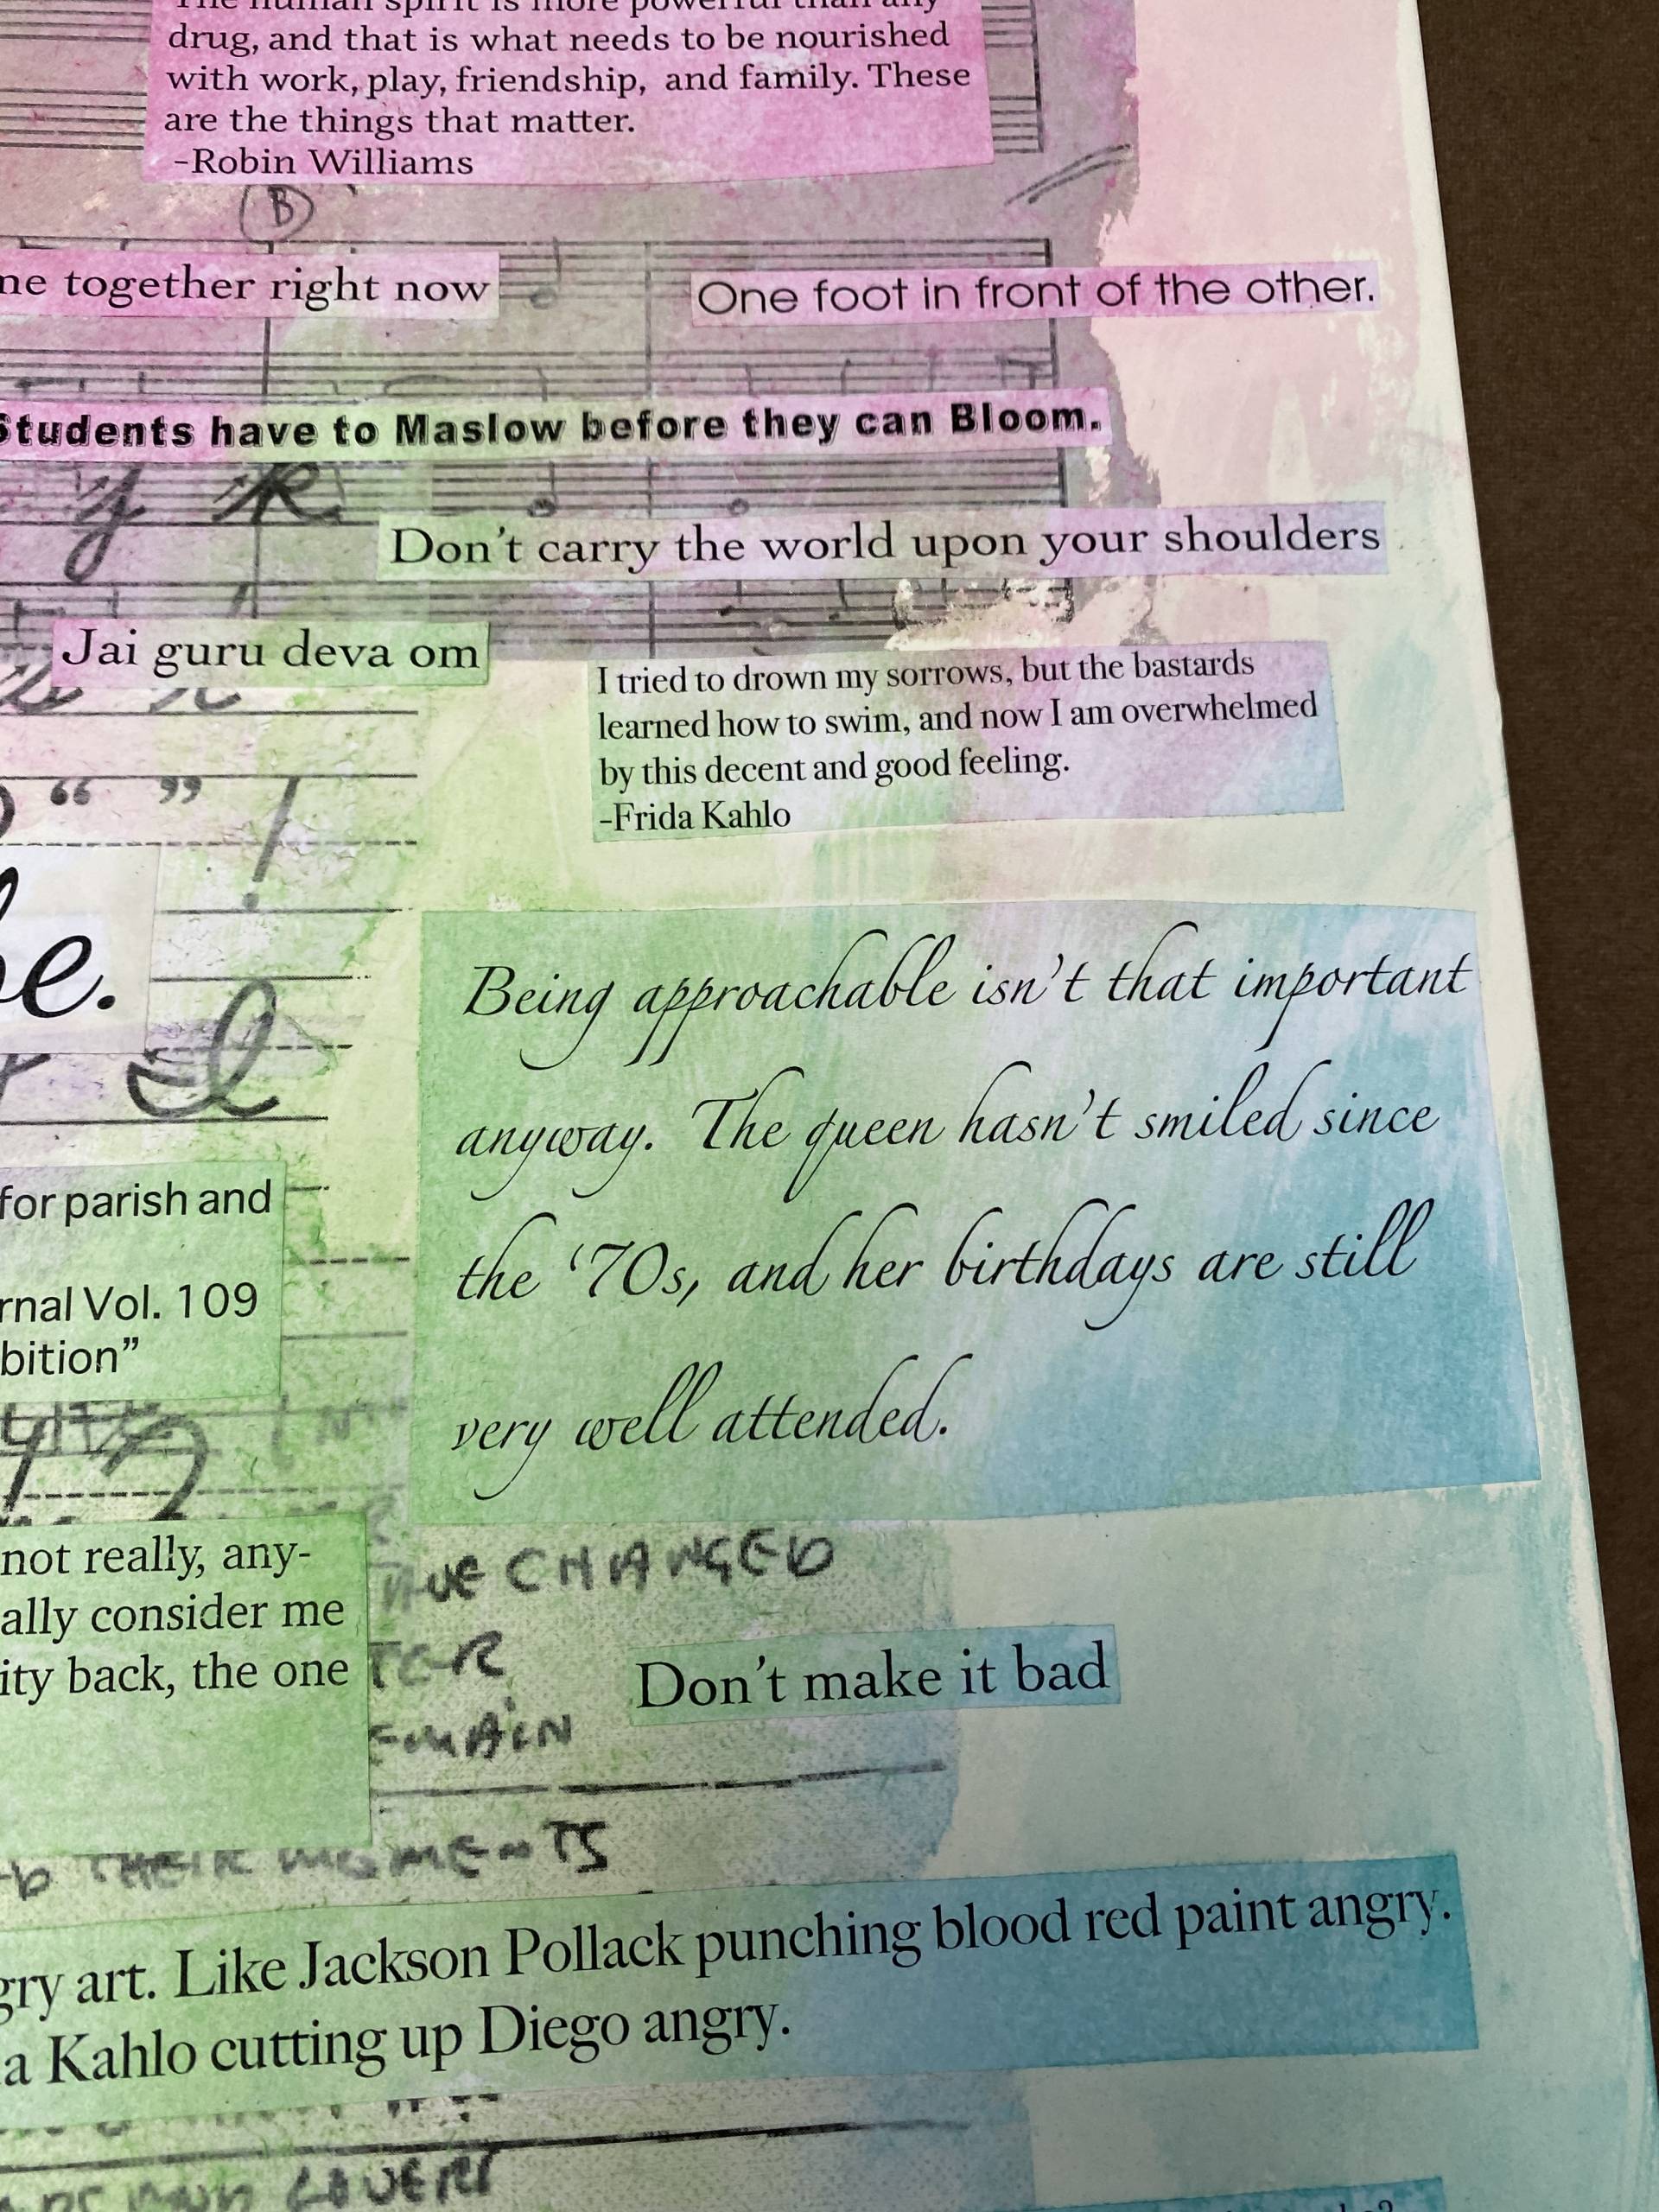 The human spirit is more powerful than any
drug, and that is what needs to be nourished
with work, play, friendship, and family. These
are the things that matter.
-Robin Williams
B
together right now
One foot in front of the other.
Students have to Maslow before they can Bloom.
Don't carry the world upon your shoulders
Jai guru deva om
I tried to drown my sorrows, but the bastards
learned how to swim, and now I am overwhelmed
by this decent and good feeling.
-Frida Kahlo
“ ” !
be.
Being approachable isn't that important
anyway. The queen hasn't smiled since
the '70s, and her birthdays are still
very well attended.
for parish and
Vol. 109
not really, any-
consider me
back, the one
CHANGED
Don't make it bad
THEIR MOMENTS
art. Like Jackson Pollack punching blood red paint angry.
Kahlo cutting up Diego angry.
LOVERS